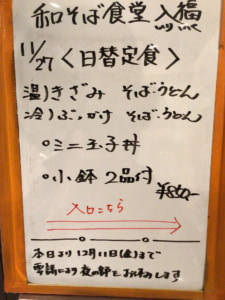 和そば食堂 入福
11/27 〈日替定食〉
温)きざみ そば・うどん
冷)ぶっかけ そば・うどん
○ミニ玉子丼
○小鉢2品付
入口こちら
本日より12月11日(金)まで
要請により夜の部をお休みします